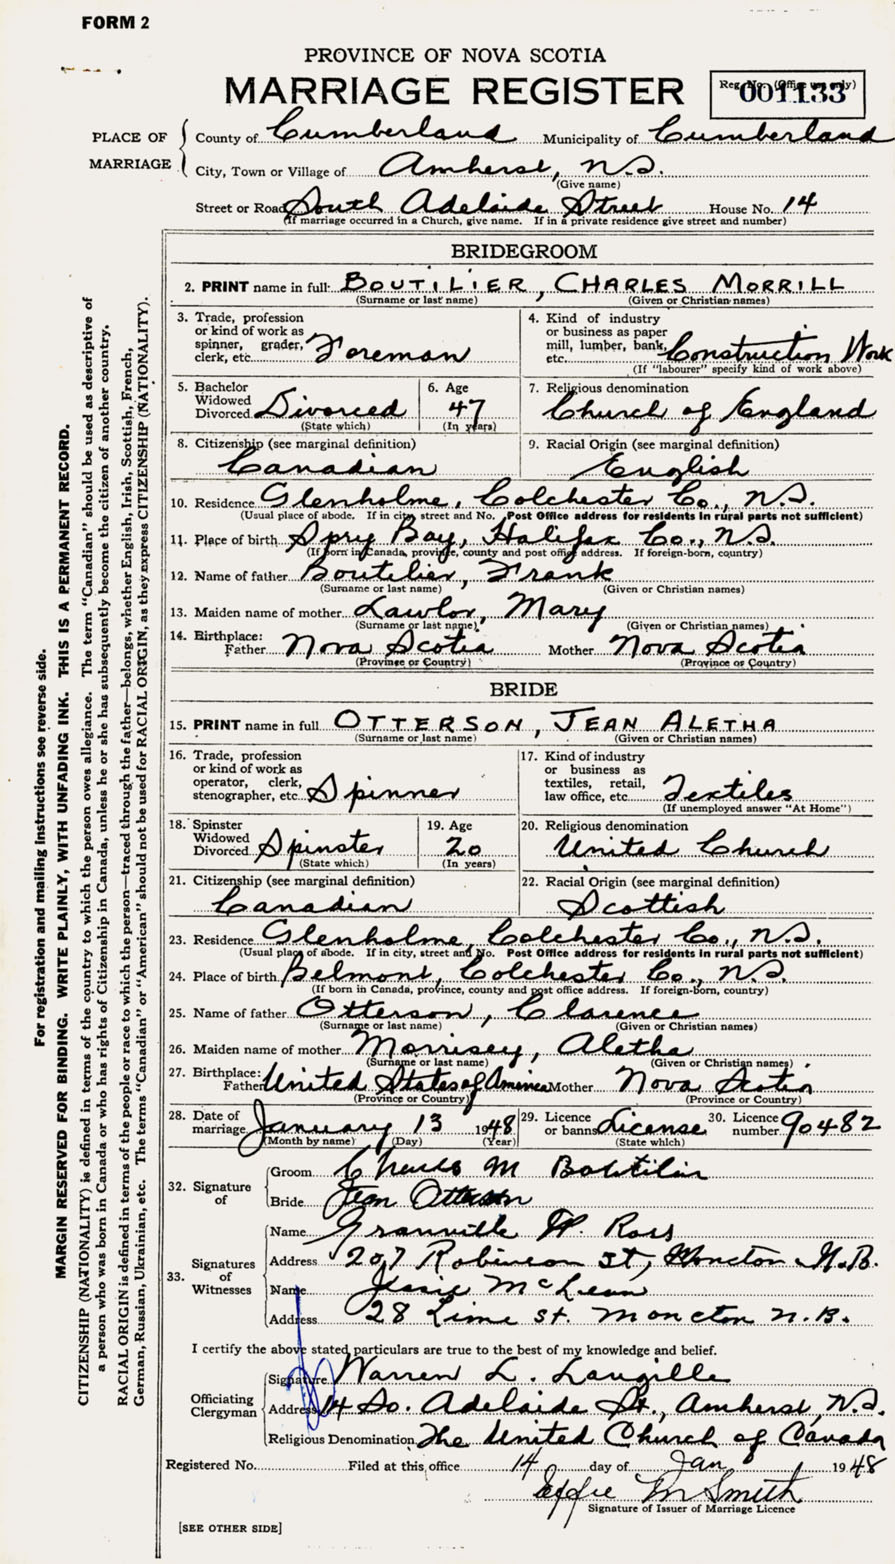 FORM 2
PROVINCE OF NOVA SCOTIA
MARRIAGE REGISTER
Reg. No. (Office use only)
001133
PLACE OF MARRIAGE
County of Cumberland Municipality of Cumberland
City, Town or Village of Amherst, N.S.
(Give name)
Street or Road South Adelaide Street House No. 14
(If marriage occurred in a Church, give name. If in a private residence give street and number)
BRIDEGROOM
2. PRINT name in full: BOUTILIER, CHARLES MORRILL
(Surname or last name) (Given or Christian names)
3. Trade, profession
or kind of work as
spinner, grader,
clerk, etc. Foreman
4. Kind of industry
or business as paper
mill, lumber, bank,
etc. Construction Work
(If "labourer" specify kind of work above)
5. Bachelor
Widowed
Divorced Divorced
(State which)
6. Age
47
(In years)
7. Religious denomination
Church of England
8. Citizenship (see marginal definition)
Canadian
9. Racial Origin (see marginal definition)
English
10. Residence Glenholme, Colchester Co., N.S.
(Usual place of abode. If in city, street and No. Post Office address for residents in rural parts not sufficient)
11. Place of birth Spry Bay, Halifax Co., N.S.
(If born in Canada, province, county and post office address. If foreign-born, country)
12. Name of father Boutilier, Frank
(Surname or last name) (Given or Christian names)
13. Maiden name of mother Lawlor, Mary
(Surname or last name) (Given or Christian names)
14. Birthplace:
Father Nova Scotia Mother Nova Scotia
(Province or Country) (Province or Country)
BRIDE
15. PRINT name in full OTTERSON, JEAN ALETHA
(Surname or last name) (Given or Christian names)
16. Trade, profession
or kind of work as
operator, clerk,
stenographer, etc. Spinner
17. Kind of industry
or business as
textiles, retail,
law office, etc. Textiles
(If unemployed answer "At Home")
18. Spinster
Widowed
Divorced Spinster
(State which)
19. Age
20
(In years)
20. Religious denomination
United Church
21. Citizenship (see marginal definition)
Canadian
22. Racial Origin (see marginal definition)
Scottish
23. Residence Glenholme, Colchester Co., N.S.
(Usual place of abode. If in city, street and No. Post Office address for residents in rural parts not sufficient)
24. Place of birth Belmont, Colchester Co., N.S.
(If born in Canada, province, county and post office address. If foreign-born, country)
25. Name of father Otterson, Clarence
(Surname or last name) (Given or Christian names)
26. Maiden name of mother Morrisey, Aletha
(Surname or last name) (Given or Christian names)
27. Birthplace:
Father United States of America Mother Nova Scotia
(Province or Country) (Province or Country)
28. Date of
marriage January 13 1948
(Month by name) (Day) (Year)
29. Licence
or banns License
(State which)
30. Licence
number 90482
32. Signature of
Groom Charles M Boutilier
Bride Jean Otterson
33. Signatures of Witnesses
Name Granville W. Ross
Address 207 Robinson St, Moncton N.B.
Name Jessie McLean
Address 28 Lime St. Moncton N.B.
I certify the above stated particulars are true to the best of my knowledge and belief.
Officiating Clergyman
Signature Warren L. Langille
Address 14 So. Adelaide St., Amherst, N.S.
Religious Denomination The United Church of Canada
Registered No. Filed at this office 14 day of Jan 1948
Effie M Smith
Signature of Issuer of Marriage Licence
[SEE OTHER SIDE]
For registration and mailing instructions see reverse side.
MARGIN RESERVED FOR BINDING. WRITE PLAINLY, WITH UNFADING INK. THIS IS A PERMANENT RECORD.
CITIZENSHIP (NATIONALITY) is defined in terms of the country to which the person owes allegiance. The term "Canadian" should be used as descriptive of
a person who was born in Canada or who has rights of Citizenship in Canada, unless he or she has subsequently become the citizen of another country.
RACIAL ORIGIN is defined in terms of the people or race to which the person—traced through the father—belongs, whether English, Irish, Scottish, French,
German, Russian, Ukrainian, etc. The terms "Canadian" or "American" should not be used for RACIAL ORIGIN, as they express CITIZENSHIP (NATIONALITY).